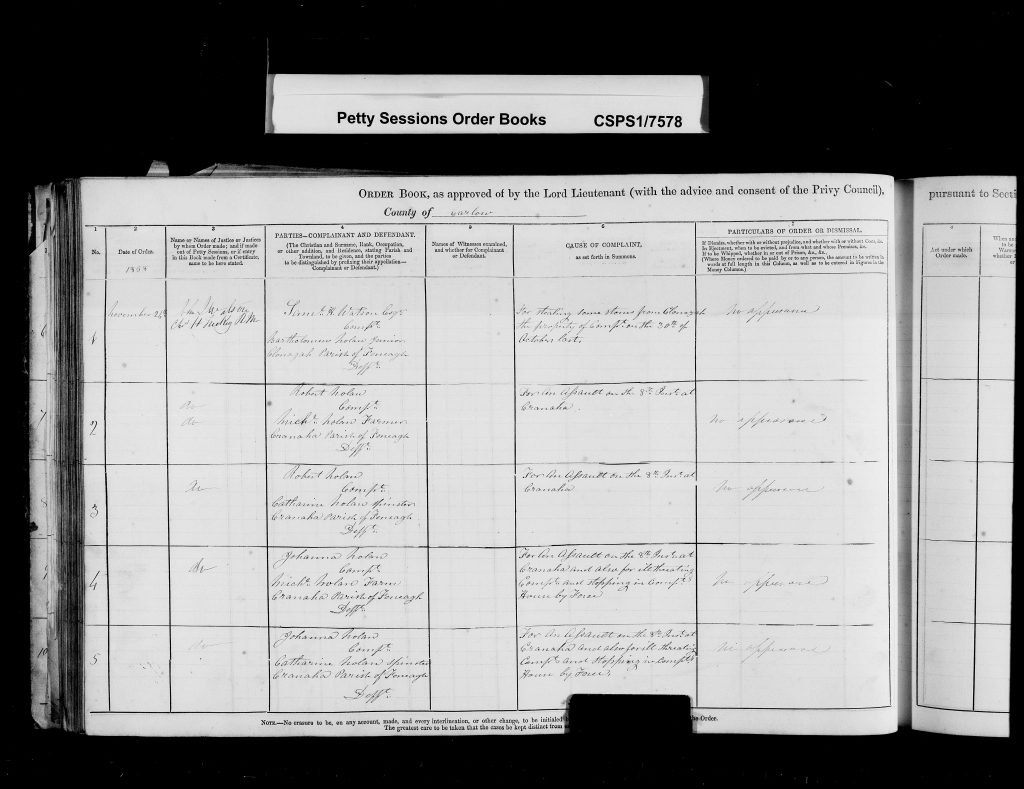 Petty Sessions Order Books CSPS1/7578
ORDER BOOK, as approved of by the Lord Lieutenant (with the advice and consent of the Privy Council), pursuant to Secti
County of Carlow
1 2 3 4 5 6
No.
Date of Order.
1858
Name or Names of Justice or Justices
by whom Order made; and if made
out of Petty Sessions, or if entry
in this Book made from a Certificate,
same to be here stated.
PARTIES—COMPLAINANT AND DEFENDANT.
(The Christian and Surname, Rank, Occupation,
or other addition, and Residence, stating Parish and
Townland, to be given, and the parties
to be distinguished by prefixing their appellation—
Complainant or Defendant.)
Names of Witnesses examined,
and whether for Complainant
or Defendant.
CAUSE OF COMPLAINT,
as set forth in Summons.
PARTICULARS OF ORDER OR DISMISSAL.
If Dismiss, whether with or without prejudice, and whether with or without Costs, &c.
In Ejectment, when to be evicted, and from what and whose Premises, &c.
If to be Whipped, whether in or out of Prison, &c., &c.
(Where Money ordered to be paid by or to any person, the amount to be written in
words at full length in this Column, as well as to be entered in Figures in the
Money Columns.)
Act under which
Order made.
1
November 24th
Saml. H Watson Esqr
Compt.
Bartholomew Nolan Junior
Clonagah Parish of Feneagh
Defft.
For stealing some stones from Clonagah
the property of Compt. on the 30th of
October last.
No appearance
2
do
do
Robert Nolan
Compt.
Michl. Nolan Farmer
Cranaha Parish of Feneagh
Defft.
For An Assault on the 8th Inst. at
Cranaha.
No appearance
3
do
Robert Nolan
Compt.
Catharine Nolan Spinster
Cranaha Parish of Feneagh
Defft.
For An Assault on the 8th Inst. at
Cranaha
No appearance
4
do
Johanna Nolan
Compt.
Michl. Nolan Farm
Cranaha Parish of Feneagh
Defft.
For An Assault on the 8th Inst. at
Cranaha and also for ill treating
Compt. and stopping in Compts
House by Force
No appearance
5
do
Johanna Nolan
Compt.
Catharine Nolan Spinster
Cranaha Parish of Feneagh
Defft.
For An Assault on the 8th Inst. at
Cranaha and also for ill treating
Compt. and stopping in Compts
House by Force
No appearance
NOTE.—No erasure to be, on any account, made, and every interlineation, or other change, to be initialed the Order.
The greatest care to be taken that the cases be kept distinct from